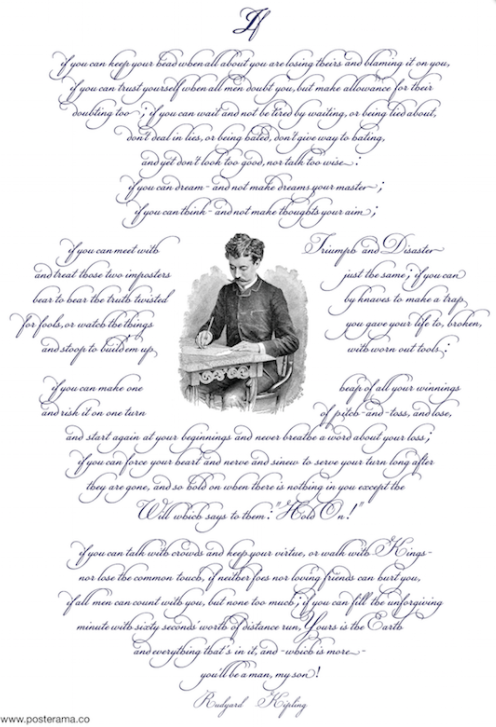 If
if you can keep your head when all about you are losing theirs and blaming it on you,
if you can trust yourself when all men doubt you, but make allowance for their
doubting too ; if you can wait and not be tired by waiting, or being lied about,
don't deal in lies, or being hated, don't give way to hating,
and yet don't look too good, nor talk too wise :
if you can dream - and not make dreams your master ;
if you can think - and not make thoughts your aim ;
if you can meet with Triumph and Disaster
and treat those two imposters just the same ; if you can
bear to hear the truth twisted by knaves to make a trap
for fools, or watch the things you gave your life to, broken,
and stoop to build em up, with worn out tools ;
if you can make one heap of all your winnings
and risk it on one turn of pitch-and-toss, and lose,
and start again at your beginnings and never breathe a word about your loss ;
if you can force your heart and nerve and sinew to serve your turn long after
they are gone, and so hold on when there is nothing in you except the
Will which says to them : "Hold On!"
if you can talk with crowds and keep your virtue, or walk with Kings -
nor lose the common touch, if neither foes nor loving friends can hurt you,
if all men can count with you, but none too much ; if you can fill the unforgiving
minute with sixty seconds' worth of distance run, Yours is the Earth
and everything that's in it, and - which is more -
you'll be a man, my son !
Rudyard Kipling
www.posterama.co